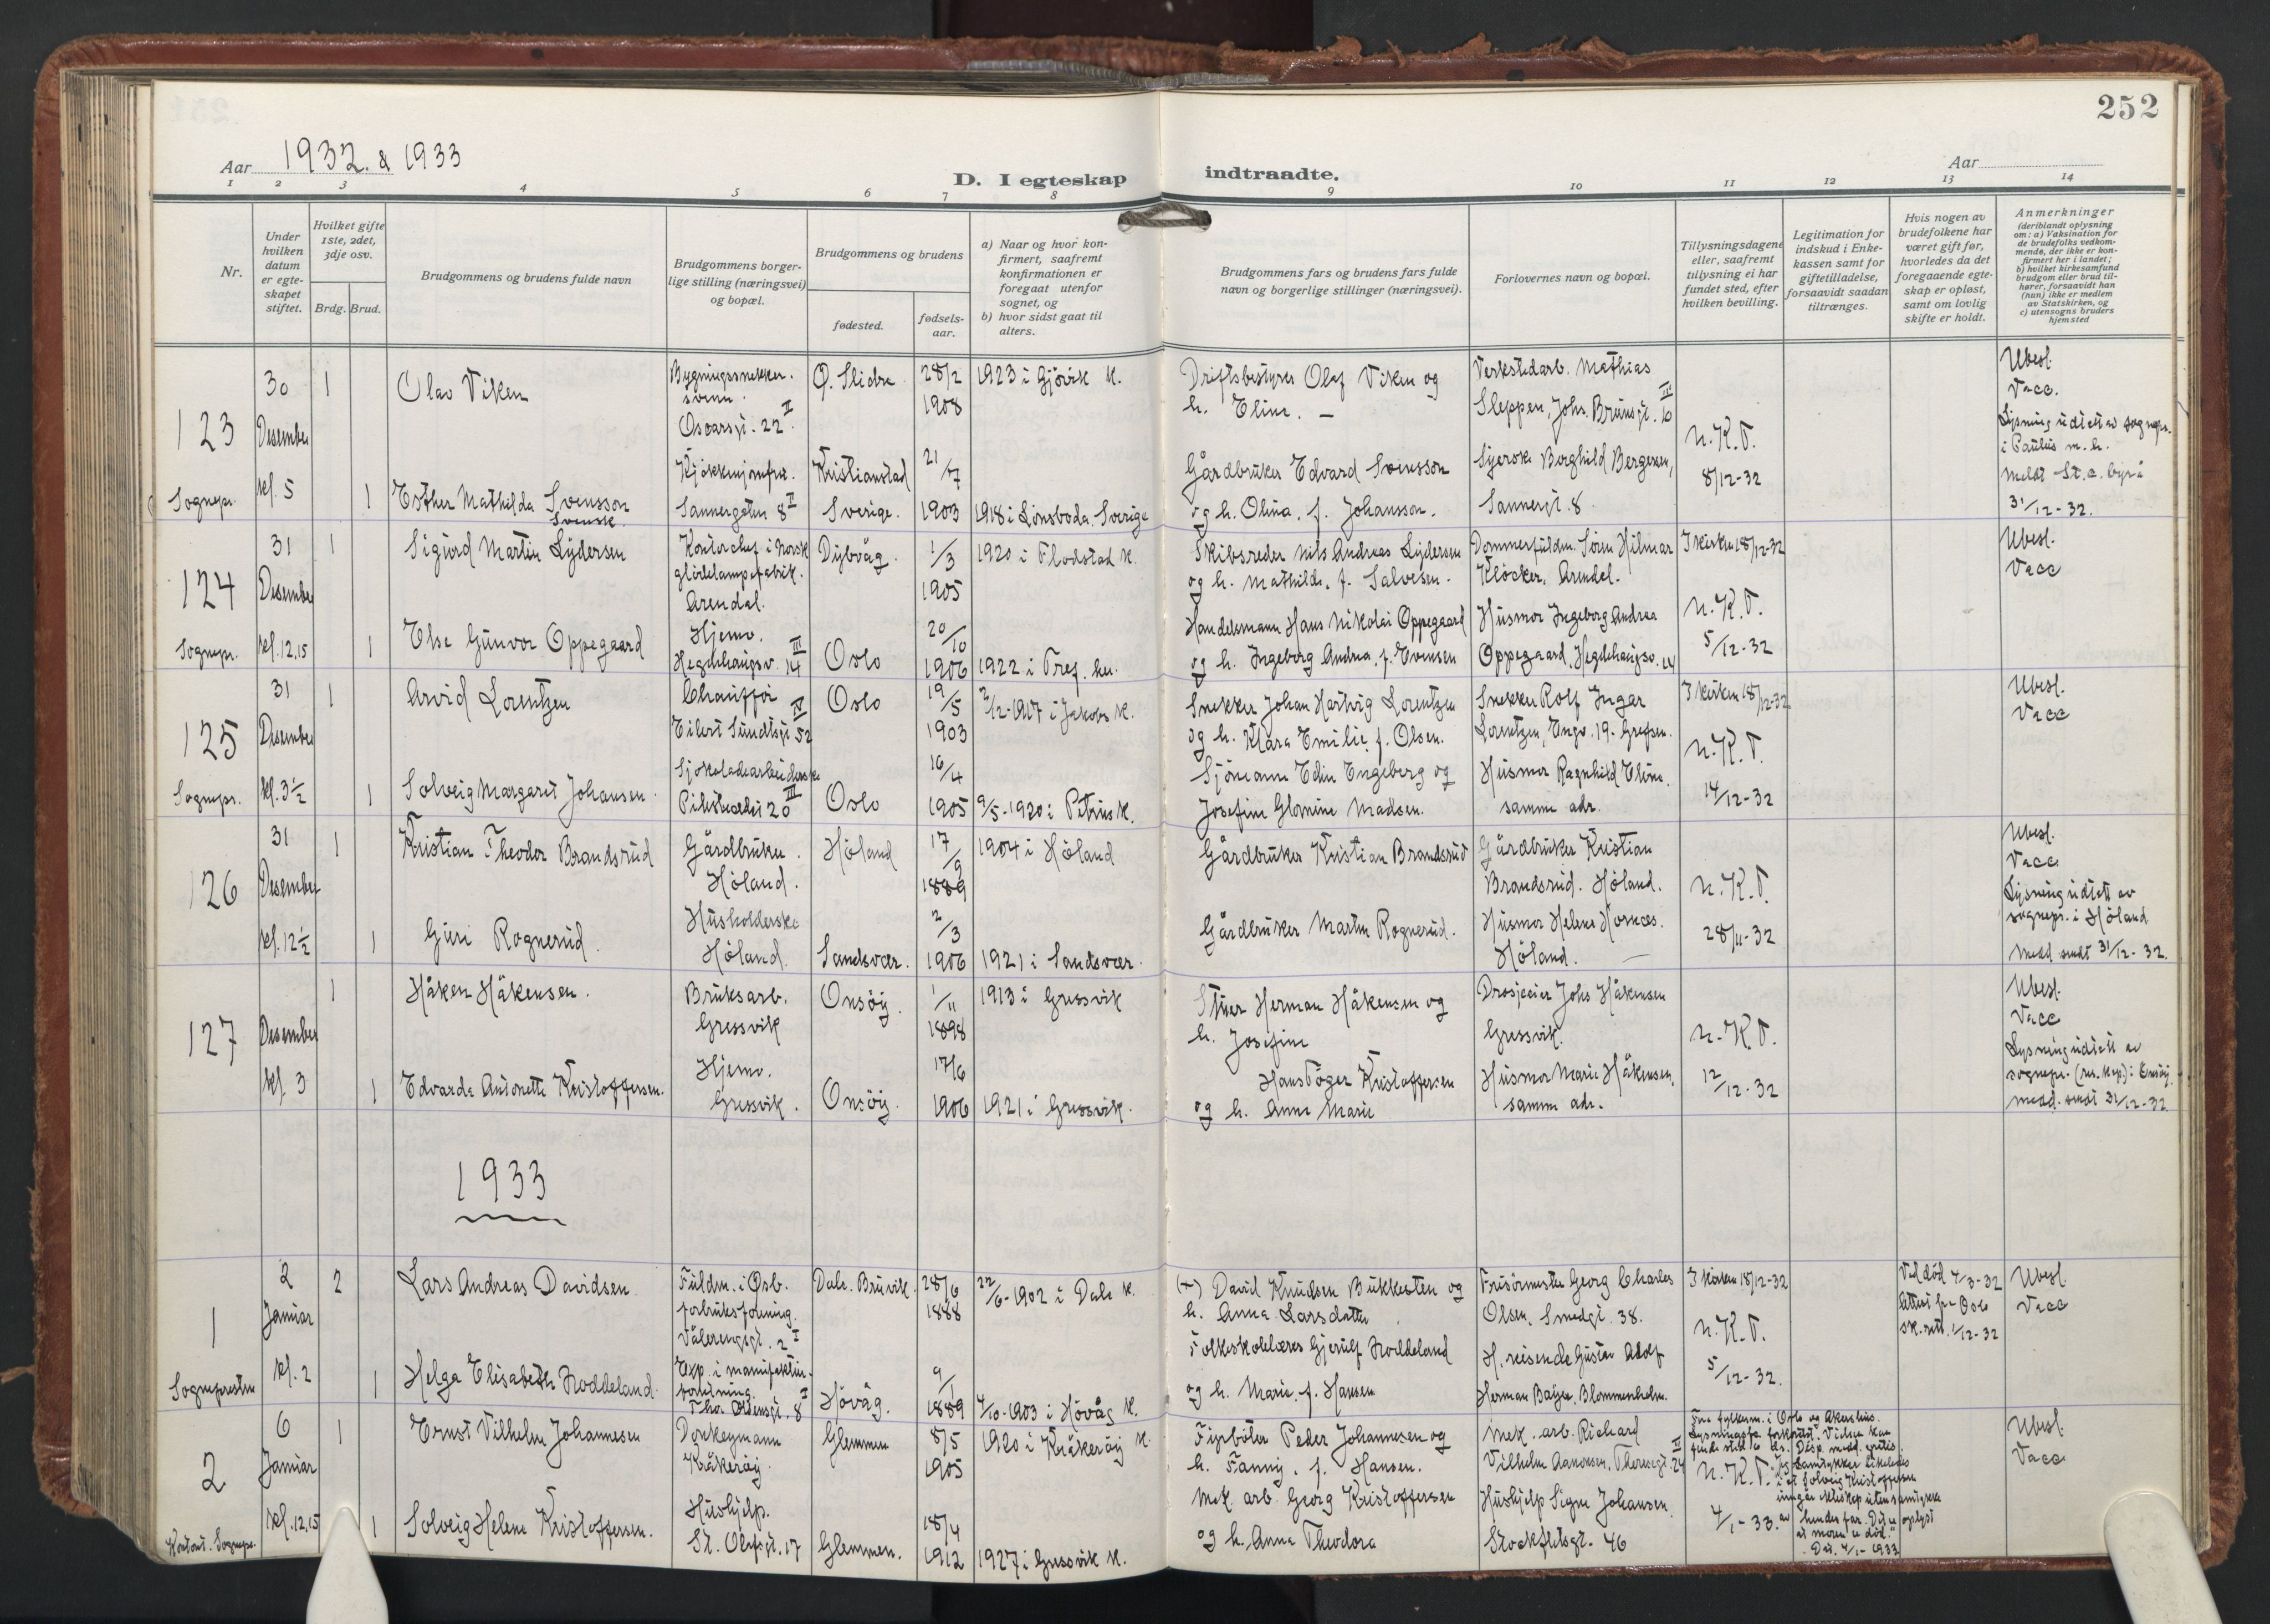 252
Aar 1932. & 1933
D. I egteskap indtraadte.
Aar
1 2 3 4 5 6 7 8 9 10 11 12 13 14
Nr.
Under hvilken datum er egte-skapet stiftet.
Hvilket gifte 1ste, 2det, 3dje osv.
Brdg. Brud.
Brudgommens og brudens fulde navn
Brudgommens borger-lige stilling (næringsvei) og bopæl.
Brudgommens og brudens
fødested.
fødsels-aar.
a) Naar og hvor kon-firmert, saafremt konfirmationen er foregaat utenfor sognet, og
b) hvor sidst gaat til alters.
Brudgommens fars og brudens fars fulde navn og borgerlige stillinger (næringsvei).
Forlovernes navn og bopæl.
Tillysningsdagene eller, saafremt tillysning ei har fundet sted, efter hvilken bevilling.
Legitimation for indskud i Enke-kassen samt for giftetilladelse, forsaavidt saadan tiltrænges.
Hvis nogen av brudefolkene har været gift før, hvorledes da det foregaaende egte-skap er opløst, samt om lovlig skifte er holdt.
Anmerkninger (deriblandt oplysning om: a) Vaksination for de brudefolks vedkom-mende, der ikke er kon-firmert her i landet; b) hvilket kirkesamfund brudgom eller brud til-hører, forsaavidt han (hun) ikke er medlem av Statskirken, og c) utensogns bruders hjemsted
123
30 Desember kl. 5
Sognepr.
1 Olav Viken
Bygningssnekker-svenn. Oscarsgt. 22 II
Ø. Slidre
28/2 1908
1923 i Gjøvik k.
Driftsbestyrer Olaf Viken og
h. Eline. —
Verkstedarb. Mathias
Sleppen, Johs. Brunsgt. 10 III
n. K. V.
8/12-32
Ubesl.
Vacc.
Lysning udtatt av sognepr.
i Paulus m. h.
Meldt St. a. byrå
31/12-32.
1 Esther Mathilda Svensson
Svensk.
Kjøkkenjomfru. Sannergaten 8 II
Kristianstad Sverige.
21/7 1903
1918 i Lönsboda Sverige
Gårdbruker Edvard Svensson
og h. Olina, f. Johansson.
Syerske Borghild Bergersen,
Sannergt. 8.
124
31 Desember kl. 12,15
Sognepr.
1 Sigurd Martin Lydersen
Kontorchef i Norsk glødelampefabrik. Arendal.
Dybvåg.
1/3 1905
1920 i Flodstad k.
Skibsreder Nils Andreas Lydersen
og h. Mathilde, f. Salvesen.
Dommerfuldm. Sören Hilmar
Klöcker, Arendal.
I kirken 18/12-32
n. K. V.
5/12-32
Ubesl.
Vacc
1 Else Gunvor Oppegaard
Hjemv. Hegdehaugsv. 14 III
Oslo
20/10 1906
1922 i Tref. ku.
Handelsmann Hans Nikolai Oppegaard
og h. Ingeborg Andrea, f. Evensen
Husmor Ingeborg Andrea
Oppegaard, Hegdehaugsv. 14
125
31 Desember kl. 3½
Sognepr.
1 Arvid Lorentzen
Chauffør Eilert Sundtsgt 52 IV
Oslo
19/5 1903
2/12-1917 i Jakobs k.
Snekker Johan Hartvig Lorentzen
og h. Klara Emilie, f. Olsen.
Snekker Rolf Ingar
Lorentzen, Engv. 19. Grefsen.
I kirken 18/12-32
n. K. V.
14/12-32
Ubesl.
Vacc
1 Solveig Margaret Johansen.
Sjokoladearbeiderske Pilestredet 20 III
Oslo
16/4 1905
9/5-1920 i Petrus k.
Sjömann Edin Engeberg og
Josefine Glomine Madsen.
Husmor Ragnhild Eline.
samme adr.
126
31 Desember kl. 12½
1 Kristian Theodor Brandsrud
Gårdbruker. Höland.
Höland
17/9 1889
1904 i Höland
Gårdbruker Kristian Brandsrud
Gårdbruker Kristian
Brandsrud. Höland.
n. K. V.
28/11-32
Ubesl.
Vacc
Lysning udtatt av
sognepr. i Höland
Medd. sendt 31/12-32.
1 Guri Rognerud.
Husholderske Höland.
Sandsvær.
2/3 1906
1921 i Sandsvær.
Gårdbruker Martin Rognerud.
Husmor Helene Hornæs.
Höland. —
127
Desember kl. 3
1 Håken Håkensen.
Bruksarb. Gressvik
Onsöy.
1/11 1898
1913 i Gressvik
Stuer Herman Håkensen og
h. Josefine
Drosjeeier Johs Håkensen
Gressvik.
n. K. V.
12/12-32
Ubesl.
Vacc
Lysning udtatt av
sognepr. (res. kap.) i Onsöy.
medd. sendt 31/12-32
1 Edvarda Antonette Kristoffersen.
Hjemv. Gressvik.
Onsöy.
17/6 1906
1921 i Gressvik.
Hans Föger Kristoffersen
og h. Anne Marie
Husmor Marie Håkensen,
samme adr.
1933
1
2 Januar kl. 2
Sognepresten
2 Lars Andreas Davidsen
Fuldm. i Osb. forbruksforening. Vålerenggt. 2 I
Dale. Bruvik.
28/6 1888
22/6-1902 i Dale k.
(+) David Knudsen Bukkesten og
h. Anna Larsdatter
Frisörmester Georg Charles
Olsen, Smedgt. 38.
I kirken 18/12-32
n. K. V.
5/12-32.
Ved död 4/3-32
Attest fra Oslo
sk. rett. 1/12-32
Ubesl
Vacc
1 Helga Elisabeth Hoddeland.
Exp. i manufaktur-forretning. Thv. Olsensgt. 8 I
Hövåg.
9/1 1889
4/10-1903 i Hövåg k.
Folkeskolelærer Gjerulf Hoddeland
og h. Marie, f. Hansen
H. reisende Gustav Adolf
Herman Bayer, Blommenholm.
2
6 Januar kl. 12,15
Kontori. Sognepr.
1 Ernst Vilhelm Johannesen
Donkeymann Kråkeröy.
Glemmen
8/5 1905
1920 i Kråkeröy k.
Fyrböter Peder Johannesen og
h. Fanny, f. Hansen.
Mek. arb. Richard
Vilhelm Aanonsen, Theresegt. 24 III
Fra fylkesm. i Oslo og Akershus.
n. K. V.
4/1-33.
av hendes far. Det er oplyst
at moren er död."
Dat. 4/1-1933
Ubesl.
Vacc
1 Solveig Helene Kristoffersen.
Hushjelp. St. Olafsgt. 17
Glemmen.
18/4 1912
1927 i Gressvik k.
Mek. arb. Georg Kristoffersen
og h. Anna Theodora
Hushjelp Signe Johansen.
Stockfletsgt. 46